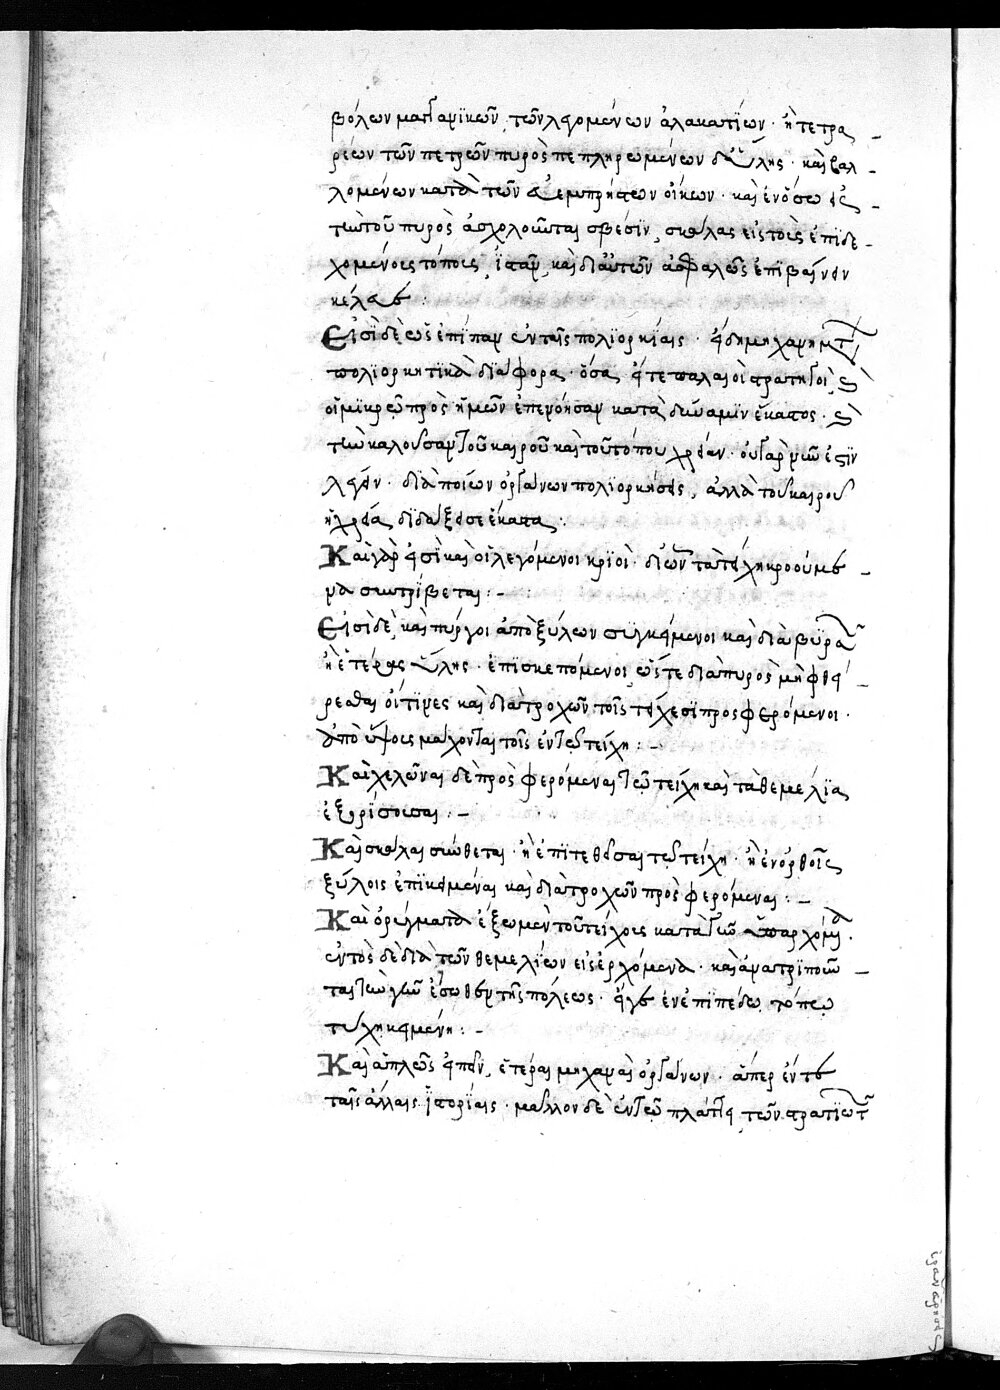 βόλων μαγγανικῶν τῶν λεγομένων ἀλακατίων· ἢ τετρα
ρέων τῶν πετρῶν πυρὸς πεπληρωμένων ὕλης· καὶ βαλ
λομένων κατὰ τῶν εὐεμπρήστων οἴκων· καὶ ἐν ὅσω εἰς
τὴν τοῦ πυρὸς ἀσχολοῦνται σβέσιν, σκάλας εἰς τοὺς ἐπιδε
χομένους τόπους, ἱστᾶν, καὶ δι αὐτῶν ἀσφαλῶς ἐπιβαίνειν
κελεύει:
Εἰσὶ δὲ ὡς ἐπίπαν ἐν ταῖς πολιορκίαις· εἴδη μηχανημάτων
πολιορκητικὰ διάφορα· ὅσα, εἴτε παλαιοὶ στρατηγοὶ, καὶ
οἱ μικρῶ πρὸς ἡμῶν ἐπενόησαν κατὰ δύναμιν ἕκαστος· καὶ
τὴν καλοῦσαν τοῦ καιροῦ καὶ τοῦ τόπου χρείαν· οὐ γὰρ νῦν ἐστιν
λέγειν· διὰ ποίων ὀργάνων πολιορκήσεις, ἀλλὰ τοῦ καιροῦ
ἡ χρεία, διδάξει σε ἕκαστα:
Καὶ γάρ εἰσι καὶ οἱ λεγόμενοι κριοὶ· δι ὧν τὰ τείχη κρούμε
να συντρίβεται: –
Εἰσὶ δὲ, καὶ πύργοι ἀπὸ ξύλων συγκείμενοι καὶ διὰ βυρσῶν
ἢ ἑτέρας ὕλης· ἐπισκεπόμενοι, ὥστε διὰ πυρὸς μὴ φθεί
ρεσθαι οἵτινες καὶ διὰ τροχῶν τοῖς τείχεσι προσφερόμενοι·
ἀπὸ ὕψους μάχονται τοῖς ἐν τῶ τείχει: –
Καὶ χελῶναι δὲ προσφερόμεναι τῶ τείχει καὶ τὰ θεμέλια
ἐξορύσσουσαι: –
Καὶ σκάλαι σύνθεται· ἢ ἐπιτεθεῖσαι τῶ τείχει· ἢ ἐν ὀρθοῖς
ξύλοις ἐπικείμεναι καὶ διὰ τροχῶν προσφερόμεναι: –
Καὶ ὀρύγματα ἔξω μὲν τοῦ τείχους κατὰ γῆν ὑπαρχόμενα·
ἐντὸς δὲ διὰ τῶν θεμελίων εἰσερχόμενα· καὶ ἀνατριποῦν
τα τὴν γῆν ἔσωθεν τῆς πόλεως· εἴγε ἐν ἐπιπέδω τόπω
τύχη κειμένη: –
Καὶ ἁπλῶς εἰπεῖν, ἕτεραι μηχαναὶ ὀργάνων· ἅπερ ἔν τε
ταῖς ἄλλαις ἱστορίαις· μᾶλλον δὲ ἐν τῶ πλάτει, τῶν στρατιωτ